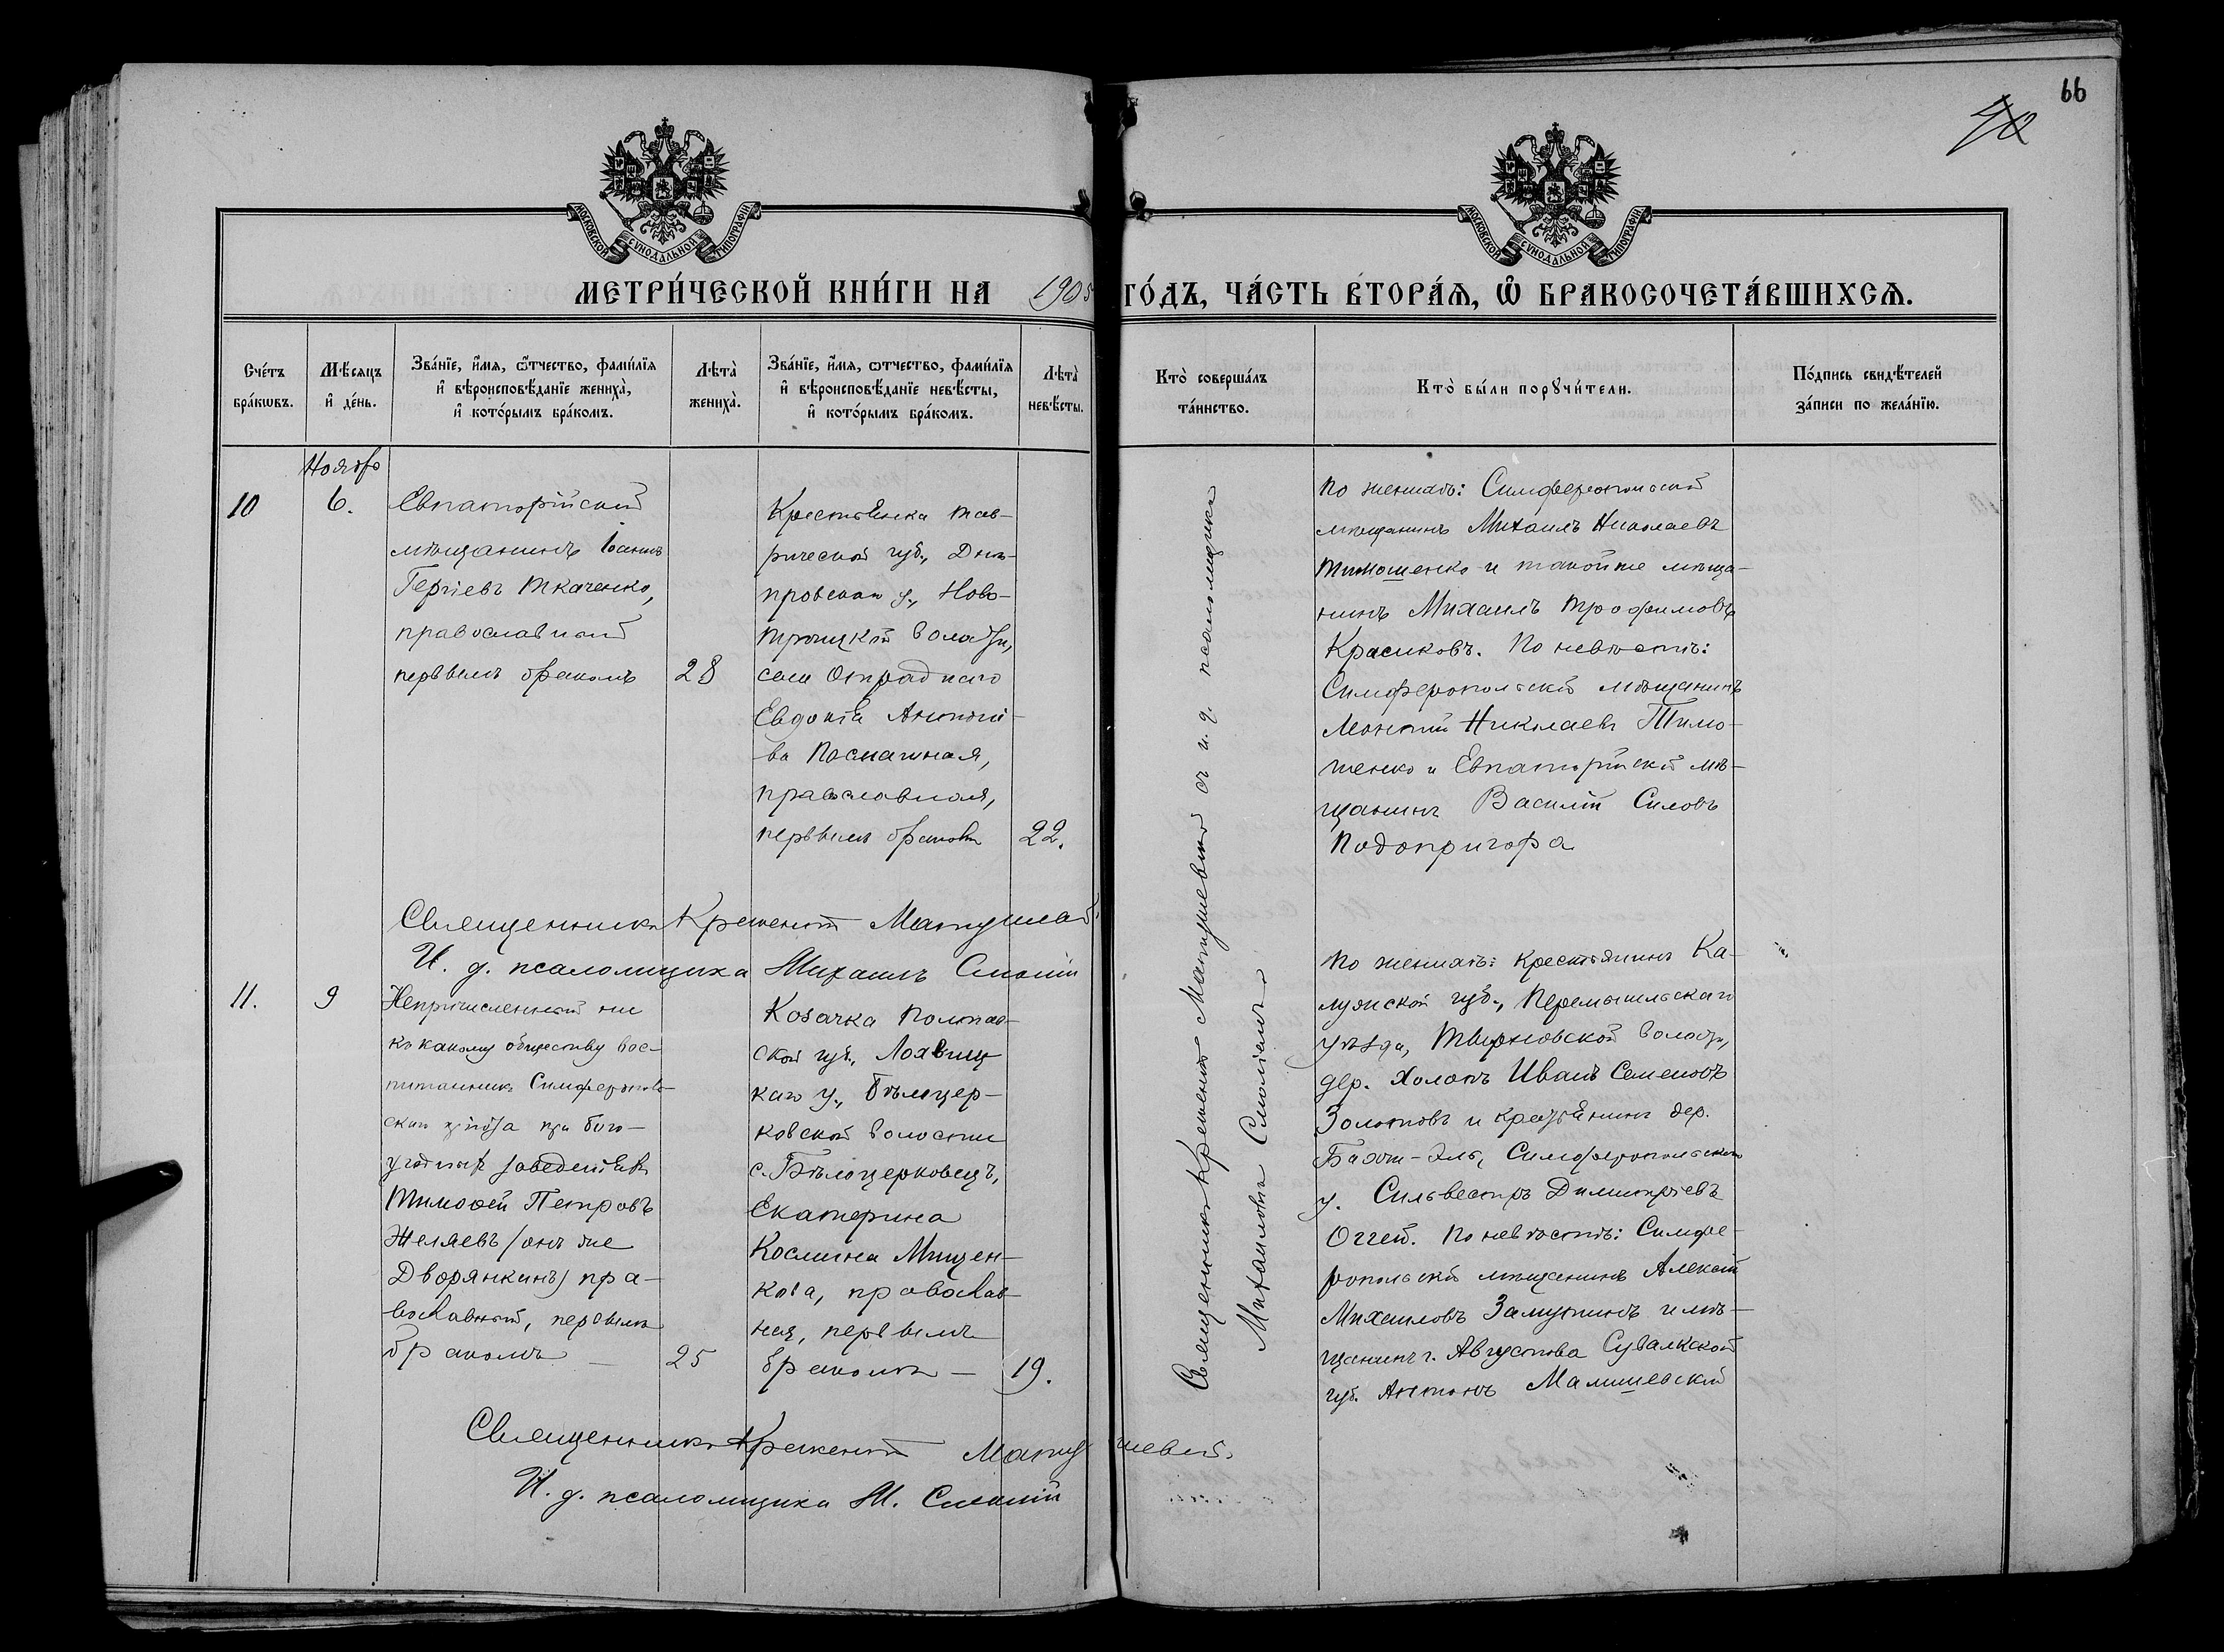 66
40
МОСКОВСКОЙ СѴНОДАЛЬНОЙ ТИПОГРАФІИ
МОСКОВСКОЙ СѴНОДАЛЬНОЙ ТИПОГРАФІИ
МЕТРИ́ЧЕСКОЙ КНИ́ГИ НА 1905 ГО́ДЪ, ЧА́СТЬ ВТОРА́Ѧ, Ѽ БРАКОСОЧЕТА́ВШИХСѦ.
Сче́тъ
бра́кѡвъ.
Мѣ́сяцъ
и҆ де́нь.
Зва́нїе, и҆́мя, ѻ҆́тчество, фами́лїя
и҆ вѣроисповѣ́данїе жениха̀,
и҆ кото́рымъ бра́комъ.
Лѣта̀
жениха̀.
Зва́нїе, и҆́мя, ѻтчество, фами́лїя
и҆ вѣроисповѣ́данїе невѣ́сты,
и҆ кото́рымъ бра́комъ.
Лѣта̀
невѣ́сты.
Кто̀ соверша́лъ
та́инство.
Кто̀ бы́ли порꙋчи́тели.
По́дпись свидѣ́телей
за́писи по жела́нїю.
Ноябрь
10
6.
Евпаторійскій
мѣщанинъ Іоаннъ
Георгіевъ Ткаченко,
православный
первымъ бракомъ
28
Крестьянка Тав-
рической губ., Днѣ-
провскаго у., Ново-
троицкой волости,
села Отраднаго
Евдокія Антоніе-
ва Посмашная,
православная,
первымъ бракомъ
22.
По женихѣ: Симферопольскій
мѣщанинъ Михаилъ Николаевъ
Тимошенко и такой же мѣща-
нинъ Михаилъ Трофимовъ
Красиковъ. По невѣстѣ:
Симферопольскій мѣщанинъ
Леонтій Николаевъ Тимо-
шенко и Евпаторійскій мѣ-
щанинъ Василій Силовъ
Подопригора
Священникъ Климентъ Матушев
И. д. псаломщика Михаилъ Смолій
11.
9
Непричисленный ни
къ какому обществу вос-
питанникъ Симферополь-
скаго пріюта при бого-
угодныхъ заведеніяхъ
Тимоѳей Петровъ
Желяевъ (онъ же
Дворянкинъ) пра-
вославный, первымъ
бракомъ —
25
Козачка Полтав-
ской губ., Лохвиц-
каго у., Бѣлоцер-
ковской волости
с. Бѣлоцерковецъ,
Екатерина
Космина Мищен-
кова, православ-
ная, первымъ
бракомъ —
19.
Священникъ Климентъ Матушевскій съ и. д. псаломщика
Михаиломъ Смоліемъ
По женихѣ: крестьянинъ Ка-
лужской губ., Перемышльскаго
уѣзда, волости,
дер. Холопъ Иванъ Семеновъ
Золотовъ и крестьянинъ дер.
Бахчи-Эль, Симферопольскаго
у. Сильвестръ Димитріевъ
По невѣстѣ: Симфе-
ропольскій мѣщанинъ Алексѣй
Михаиловъ Замуткинъ и мѣ-
щанинъ г. Августова Сувалкской
губ. Антонъ Малишевскій
Священникъ Климентъ Матушевскій.
И. д. псаломщика М. Смолій